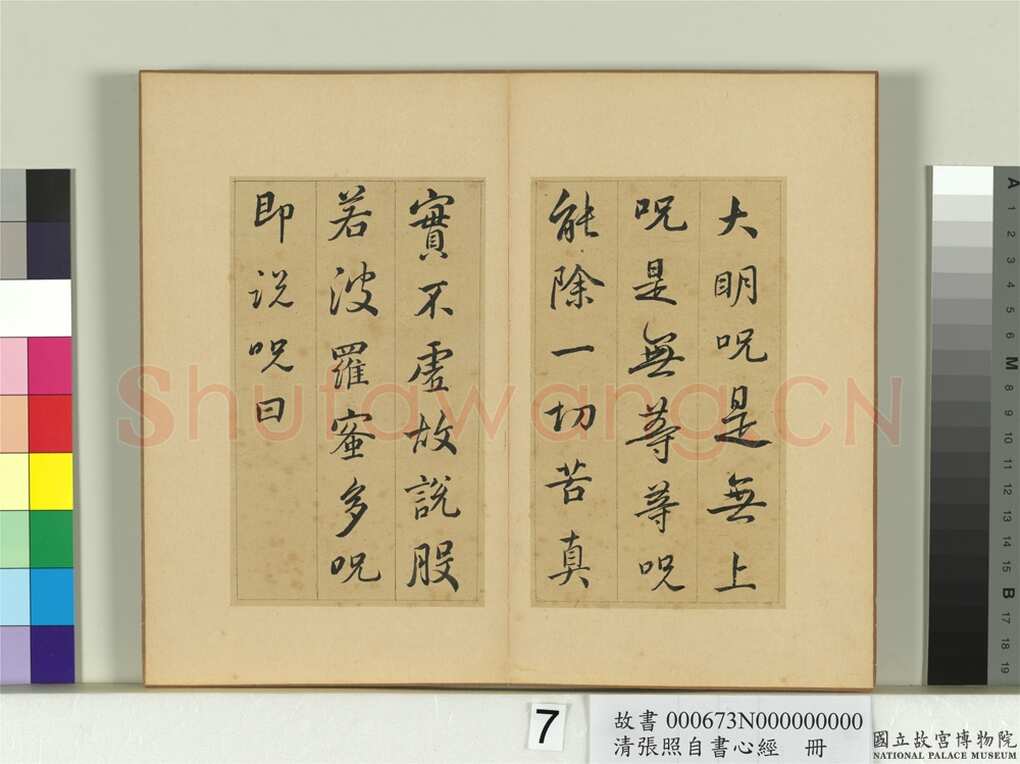 大明呪是無上
呪是無等等呪
能除一切苦真
實不虛故說般
若波羅蜜多呪
即说呪曰
Shufawang.CN
7
故書 000673N000000000
清張照自書心經 冊
國立故宮博物院
NATIONAL PALACE MUSEUM
A 1 2 3 4 5 6 M 8 9 10 11 12 13 14 15 B 17 18 19